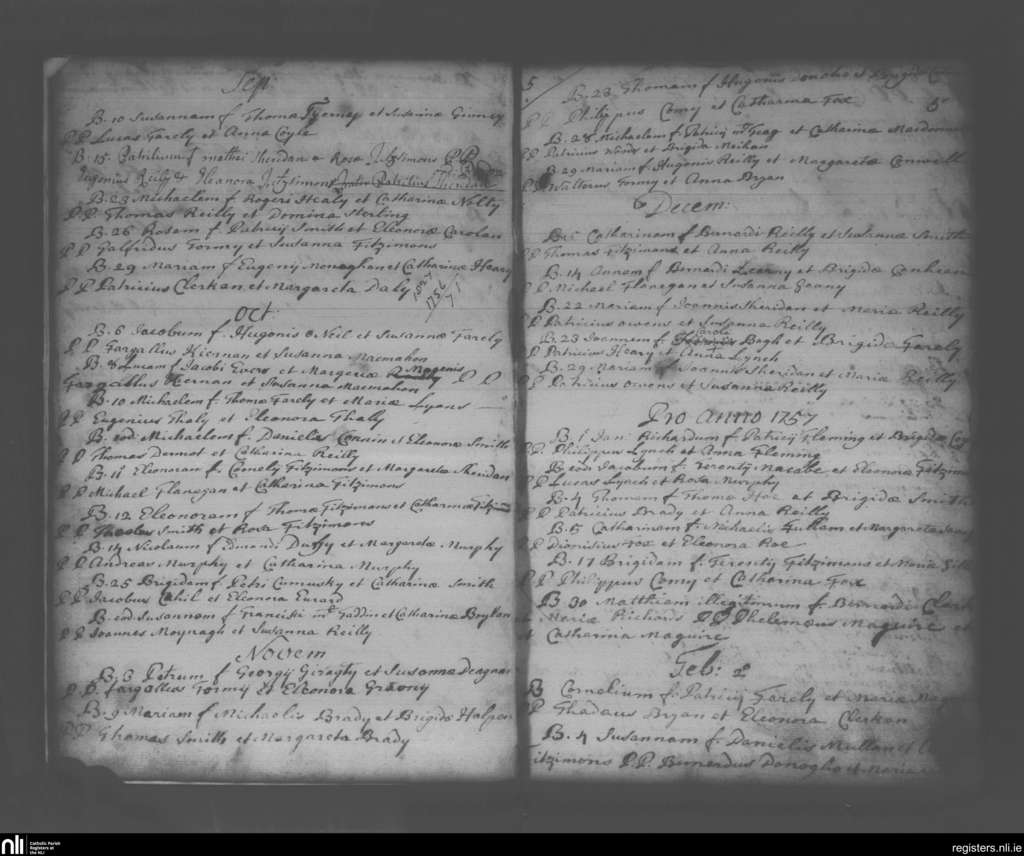 Sep:
B. 10 Susannam f Thoma Tierney et Susanna Ginney
P P Lucas Farely et Anna Coyle
B. 15. Patritium f mathei Sheridan & Rosa Fitzsimons P P
Eugenius Reily & Eleanora Fitzsimons Patritius Sheridan
B. 23 Michaelem f Rogeri Healy et Catharinæ Nolty
P P. Thomas Reilly et Domina Sterling
B. 26 Rosam f Patricij Smith et Eleonoræ Carolan
P P Galfridus Formy et Susanna Fitzimons
B. 29 Mariam f Eugeny Monaghan et Catharinæ Heary
P P Patricius Clerkan et Margareta Daly
1827
1756
71
Oct:
B. 6 Jacobum f. Hugonis o Neil et Susannæ Farely
P P Fargallus Kiernan et Susanna Macmahon
B. 8 f Jacobi Evers et Margeriæ Magenis
Fargallus Kernan et Susanna Macmahon P P
B. 10 Michaelem f. Thomæ Farely et Mariæ Lyons
P P Eugenius Thaly et Eleonora Thaly
B. eod Michaelem f. Danielis Connin et Eleonoræ Smith
P P Thomas Dermot et Catharina Reilly
B. 11 Elionoram f. Cornely Fitzimons et Margaretæ Sheridan
P P Michael Flanegan et Catharina Fitzimons
B. 12 Eleonoram f Thomæ Fitzimons et Catharinæ Fitzimons
P P Smith et Rosa Fitzimons
B. 14 Nicolaum f Edmundi Duffy et Margaretæ Murphy
P P Andreas Murphy et Catharina Murphy
B. 25 Brigidam f. Petri Cumusky et Catharinæ Smith
P P Jacobus Cahil et Eleonora Eurard
B. eod Susannam f Francisci mc Faddin et Catharinæ Boylan
P P Joannes Moynagh et Susanna Reilly
Novem
B. 3 Petrum f Georgij Giraghty et Susannæ Deagnan
P P. Fargallus Formy et Eleonora
B. 9 Mariam f Michaelis Brady et Brigidæ Halpen
P P Thomas Smith et Margareta Brady
5
B. 23 Thomam f Hugonis Donoho et
5
P P Philippus Comy et Catharina Fox
B. 28 Michaelem f Patricij mc Teag et Catharinæ
P P Patricius Woods et Brigida Meihan
B. 29 Mariam f Hugonis Reilly et Margaretæ Conwell
P P Walterus Formy et Anna Bryan
Decem:
B. Catharinam f Bernardi Reilly et Susannæ Smith
P P Thomas Fitzimons et Anna Reilly
B. 14 Annam f Bernardi Learny et Brigidæ
P P Michael Flanegan et Susanna Geany
B. 22 Mariam f Joannis Sheridan et Maria Reilly
P P Patricius Owens et Susanna Reilly
B. 23 Joannem f Caroli Bagh et Brigidæ Farely
P P Patricius Heary et Anna Lynch
B. 29 Mariam f Joannis Sheridan et Mariæ Reilly
P P Patricius Owens et Susanna Reilly
Pro Anno 1757
B. 1 Jan: Richardum f Patricij Fleming et Brigidæ
P P. Philippus Lynch et Anna Fleming
B. eod Jacobum f. Terentij Macabe et Eleonoræ
P P Lucas Lynch et Rosa Murphy
B. 4 Thomam f Thomæ et Brigidæ Smith
P P Patricius Brady et Anna Reilly
B. 15 Catharinam f. Michaelis Fullam et Margaretæ
P P Dionisius Foæ et Eleonora Roe
B. 17 Brigidam f. Terenty Fitzimons et Mariæ
P P Philippus Comy et Catharina Fox
B. 30 Matthiam illegitimum f Bernardi Clark
et Mariæ Richards P P Phelemeus Maguire et
et Catharina Maguire
Feb: 2
B Cornelium f Patricij Farely et Mariæ
P P Thadæus Bryan et Eleonora Clerkan
B. 4 Susannam f Danielis Mullan et
Fitzimons P. P. Bernardus Donogho et Maria
nli
Catholic Parish
Registers at
the NLI
registers.nli.ie